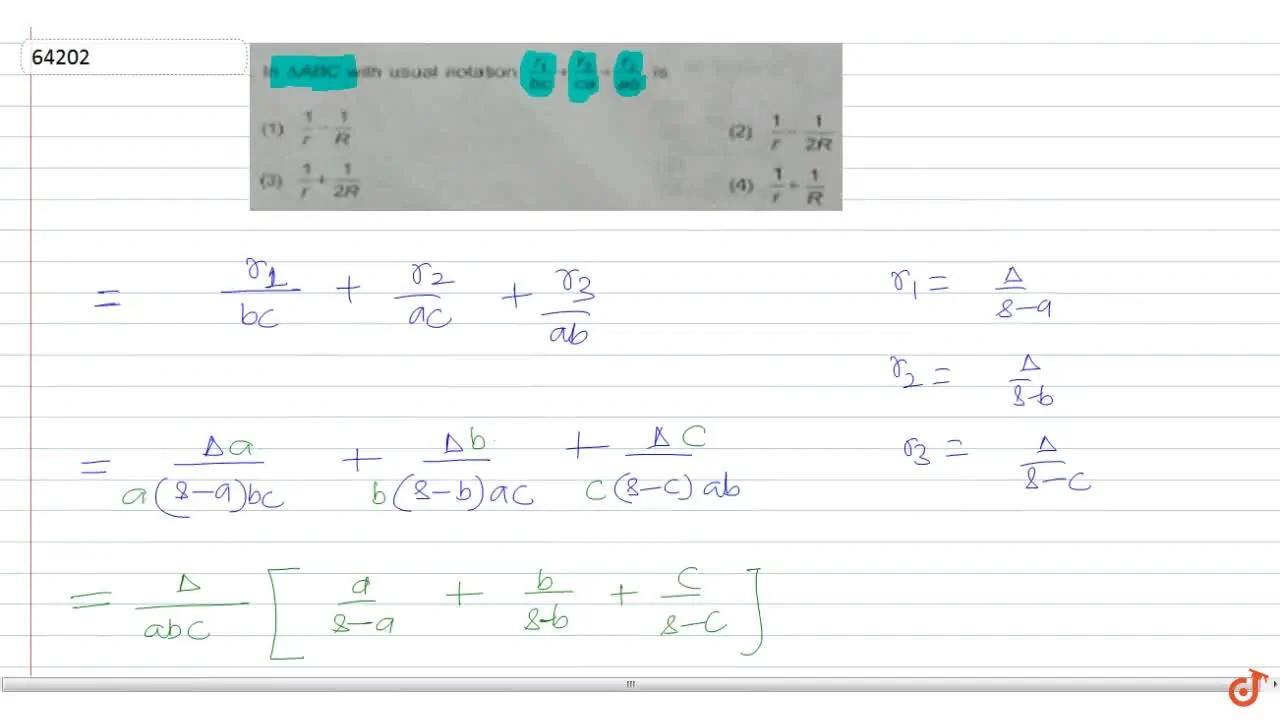 64202
In ΔABC with usual notation r₁/bc + r₂/ca + r₃/ab is
(1) 1/r − 1/R
(2) 1/r − 1/2R
(3) 1/r + 1/2R
(4) 1/r + 1/R
= r₁/bc + r₂/ac + r₃/ab
r₁ = Δ/s−a
r₂ = Δ/s−b
= Δa/a(s−a)bc + Δb/b(s−b)ac + Δc/c(s−c)ab
r₃ = Δ/s−c
= Δ/abc [ a/s−a + b/s−b + c/s−c ]